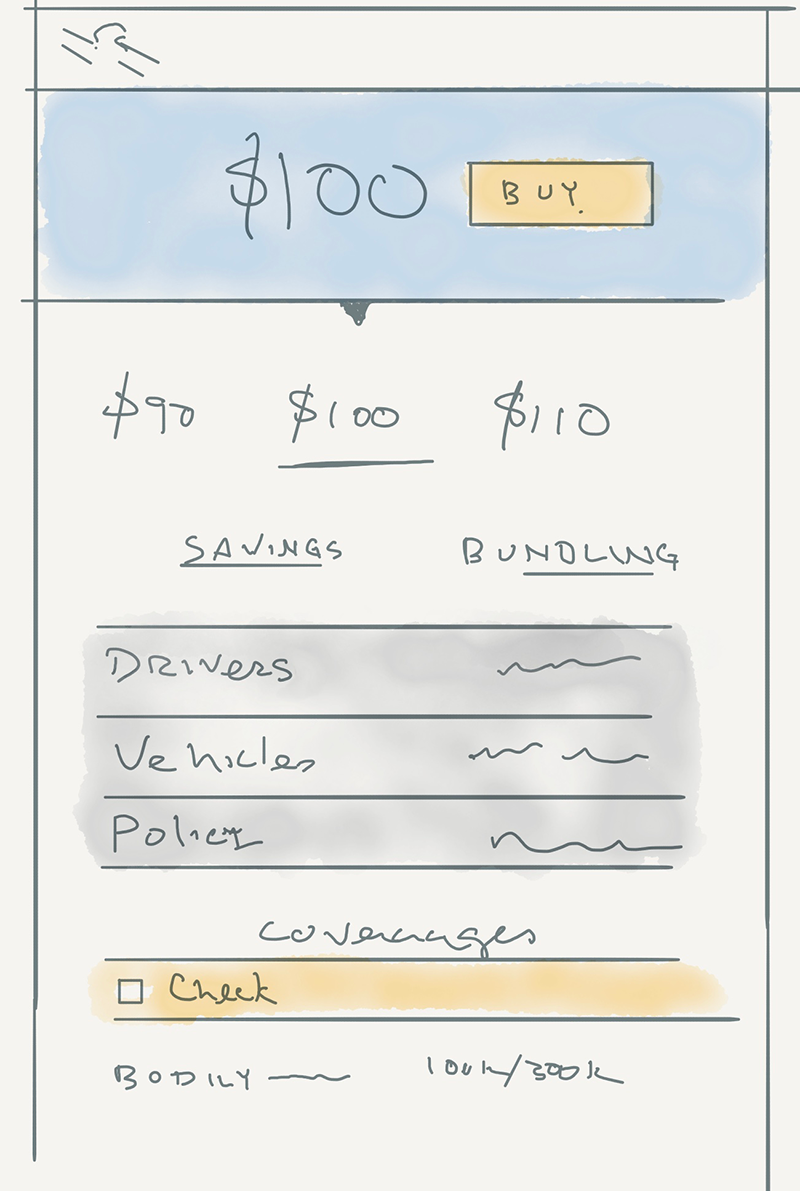 $100 BUY.
$90 $100 $110
SAVINGS BUNDLING
Drivers
Vehicles
Policy
Coverages
Check
BODILY 100k/300k